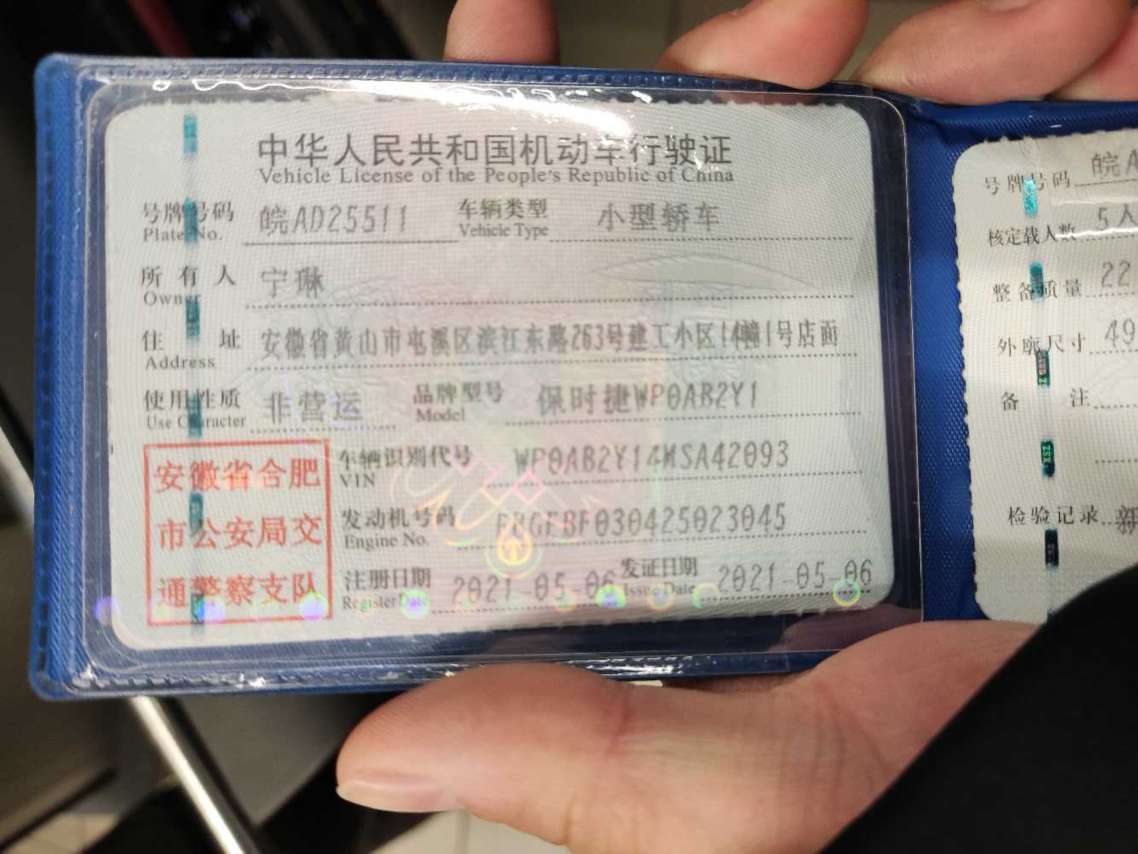 中华人民共和国机动车行驶证
Vehicle License of the People's Republic of China
号牌号码 皖AD25511 车辆类型 小型轿车
Plate No. Vehicle Type
所有人 宁琳
Owner
住址 安徽省黄山市屯溪区滨江东路263号建工小区14幢1号店面
Address
使用性质 非营运 品牌型号 保时捷WP0AB2Y1
Use Character Model
车辆识别代号 WP0AB2Y14MSA42093
VIN
发动机号码
Engine No.
注册日期 2021-05-06 发证日期 2021-05-06
Register Date Issue Date
安徽省合肥
市公安局交
通警察支队
号牌号码 皖A
核定载人数 5人
整备质量 22
外廓尺寸 49
备注
检验记录 新